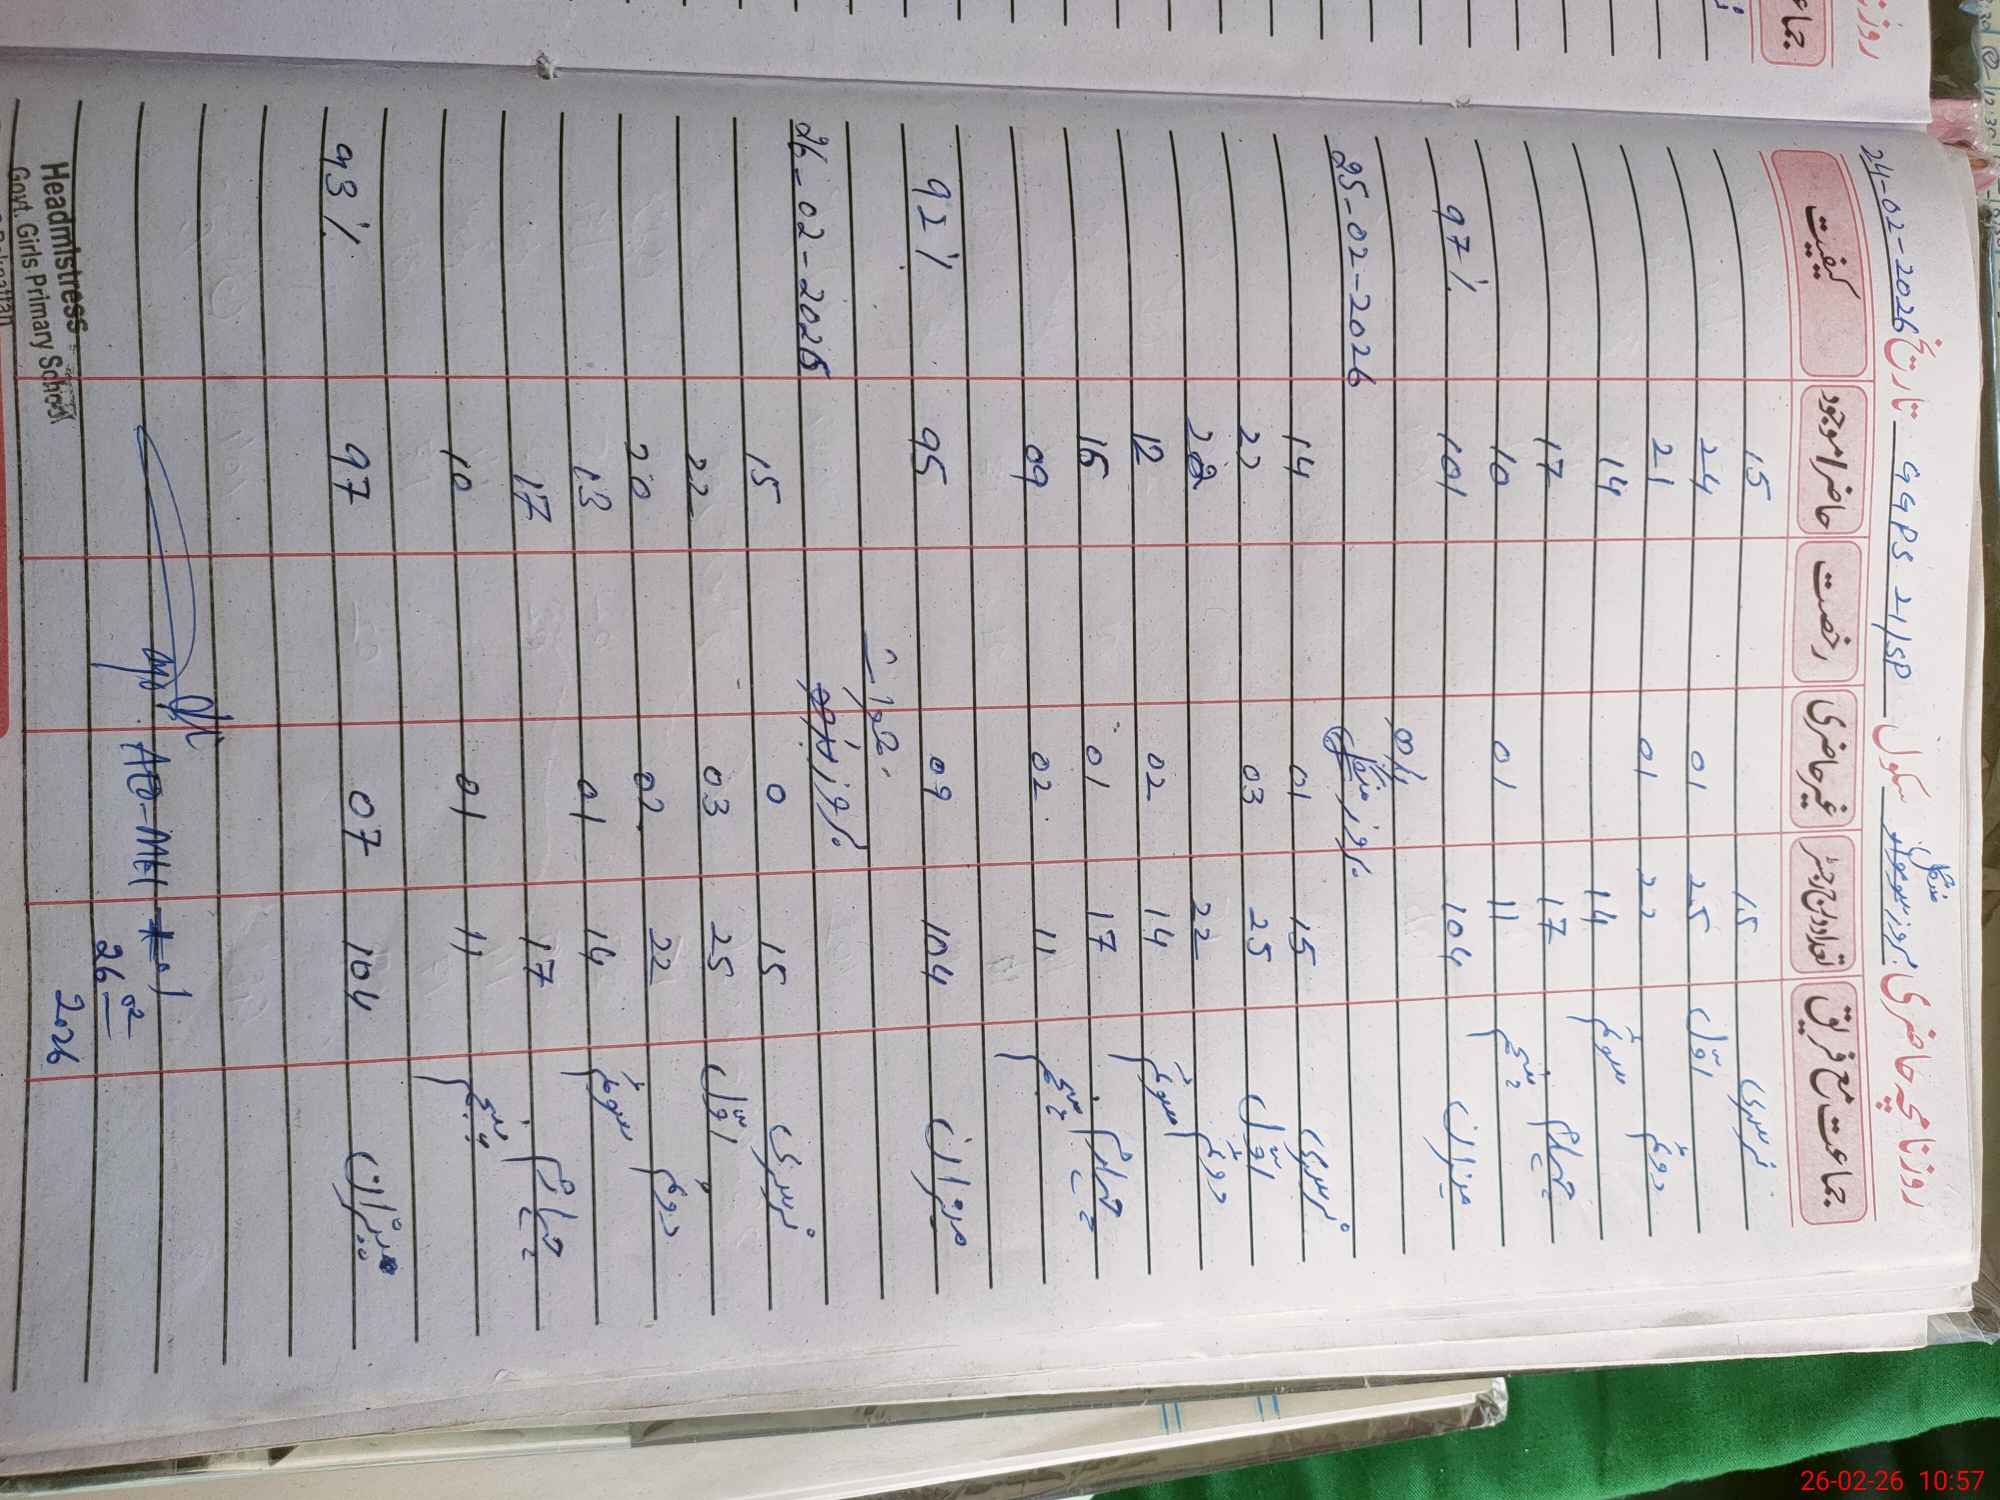 روزنامچہ حاضری بروز سوموار منگل سکول GGPS 21/SP تاریخ 24-02-2026
جماعت مع فریق تعداد درج رجسٹر غیر حاضری رخصت حاضر/موجود کیفیت
نرسری 15 15
اوّل 25 01 24
دوئم 22 01 21
سوئم 14 14
چہارم 17 17
پنجم 11 01 10
میزان 104 101 97%
بروز منگل 25-02-2026
نرسری 15 01 14
اوّل 25 03 22
دوئم 22 20
سوئم 14 02 12
چہارم 17 01 16
پنجم 11 02 09
میزان 104 09 95 92%
بروز 26-02-2026
نرسری 15 0 15
اوّل 25 03 22
دوئم 22 02 20
سوئم 14 01 13
چہارم 17 17
پنجم 11 01 10
میزان 104 07 97 93%
26 02
2026
Headmistress
Govt. Girls Primary School
روزنا
جماعت
26-02-26 10:57